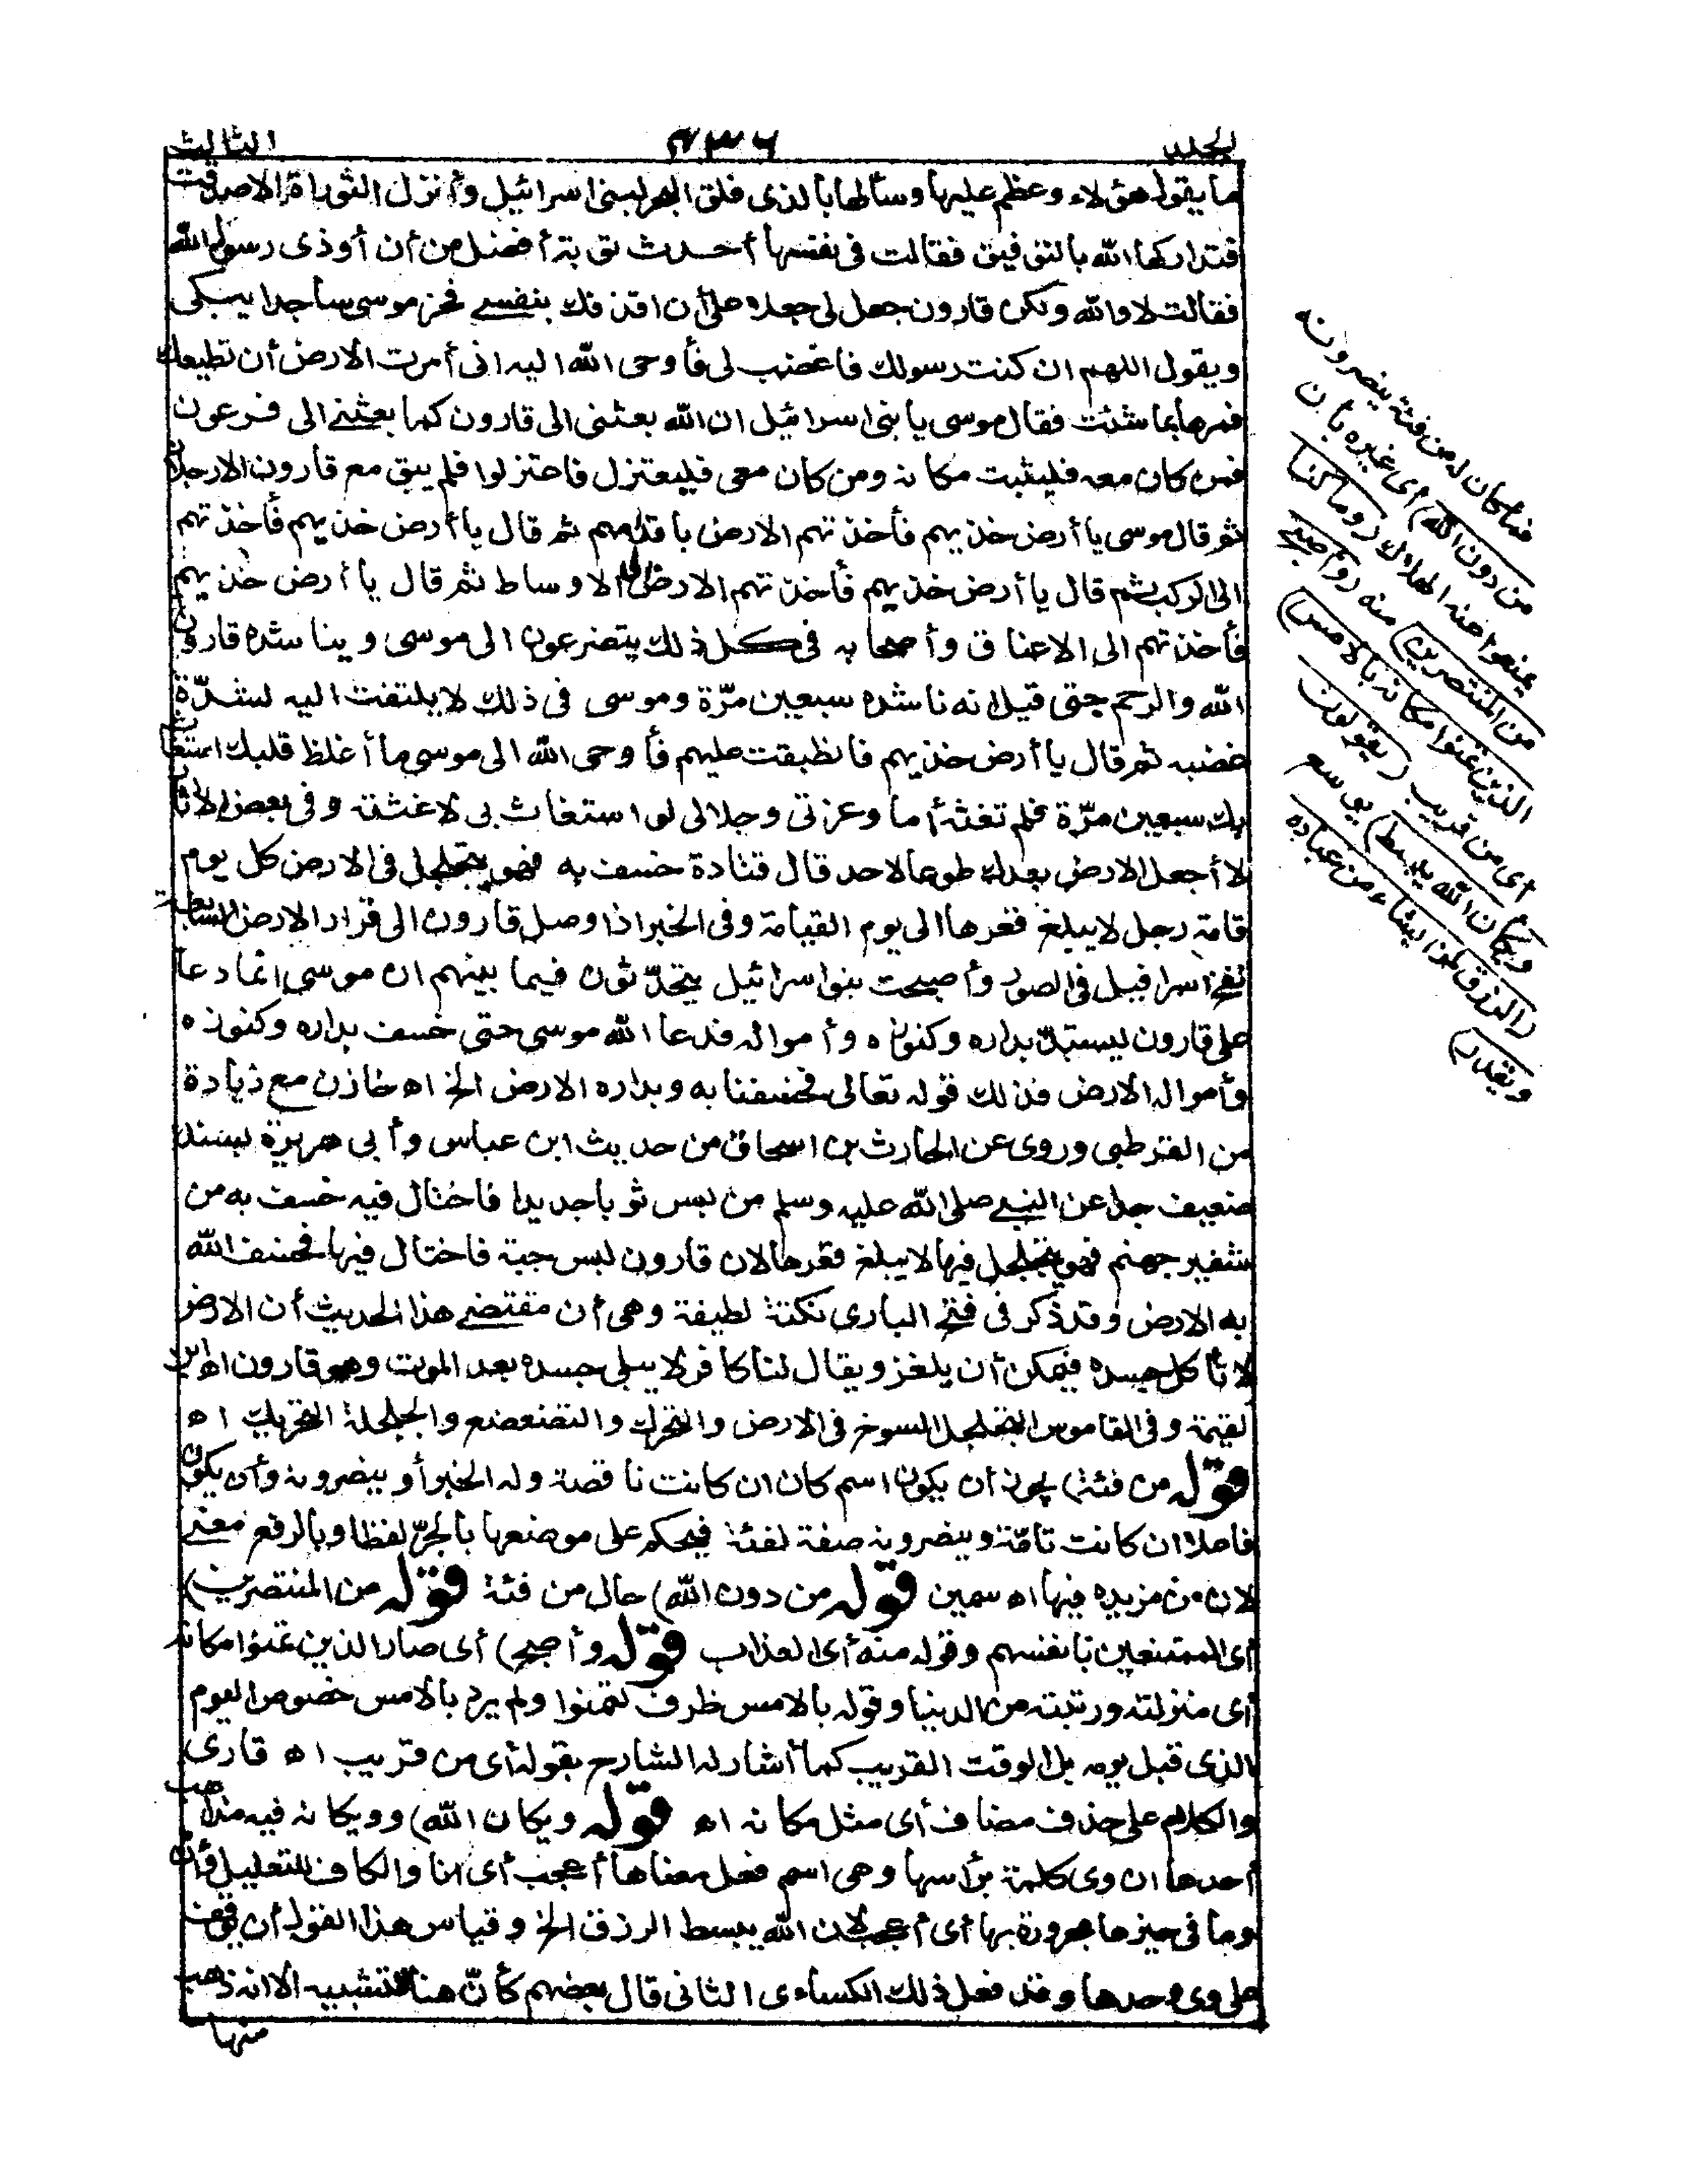 الجلد ٤٣٦ الثالث
ما يقول هؤلاء وعظم عليها وسألها بالذى فلق البحر لبنى اسرائيل وأنزل التوراة الا صدقت
فتداركها الله بالتوفيق فقالت فى نفسها أحدث توبة أفضل من أن أوذى رسول الله
فقالت لا والله ولكن قارون جعل لى جعلا على أن اقذفك بنفسى فخر موسى ساجدا يبكى
ويقول اللهم ان كنت رسولك فاغضب لى فأوحى الله اليه انى أمرت الارض أن تطيعك
فمرها بما شئت فقال موسى يا بنى اسرائيل ان الله بعثنى الى قارون كما بعثنى الى فرعون
فمن كان معه فليثبت مكانه ومن كان معى فليعتزل فاعتزلوا فلم يبق مع قارون الا رجلان
ثم قال موسى يا أرض خذيهم فأخذتهم الارض بأقدامهم ثم قال يا أرض خذيهم فأخذتهم
الى الركب ثم قال يا أرض خذيهم فأخذتهم الارض الى الاوساط ثم قال يا أرض خذيهم
فأخذتهم الى الاعناق وأصحابه فى كل ذلك يتضرعون الى موسى ويناشده قارون
الله والرحم حتى قيل انه ناشده سبعين مرّة وموسى فى ذلك لا يلتفت اليه لشدّة
غضبه ثم قال يا أرض خذيهم فانطبقت عليهم فأوحى الله الى موسى ما أغلظ قلبك استغاث
بك سبعين مرّة فلم تغثه أما وعزتى وجلالى لو استغاث بى لاغثته وفى بعض الآثار
لا أجعل الارض بعدك طوعا لاحد قال قتادة خسف به فهو يتجلجل فى الارض كل يوم
قامة رجل لا يبلغ قعرها الى يوم القيامة وفى الخبر اذا وصل قارون الى قرار الارض السابعة
نفخ اسرافيل فى الصور وأصبحت بنو اسرائيل يتحدّثون فيما بينهم ان موسى انما دعا
على قارون ليستبدّ بداره وكنوزه وأمواله فدعا الله موسى حتى خسف بداره وكنوزه
وأمواله الارض فذلك قوله تعالى فخسفنا به وبداره الارض الخ اه خازن مع زيادة
من القرطبى وروى عن الحارث بن اسحاق من حديث ابن عباس وأبى هريرة بسند
ضعيف جدا عن النبى صلى الله عليه وسلم من لبس ثوبا جديدا فاختال فيه خسف به من
شفير جهنم فهو يتجلجل فيها لا يبلغ قعرها لان قارون لبس جبة فاختال فيها فخسف الله
به الارض وقد ذكر فى فتح البارى نكتة لطيفة وهى أن مقتضى هذا الحديث أن الارض
لا تأكل جسده فيمكن أن يلغز ويقال لنا كافر لا يبلى جسده بعد الموت وهو قارون اه ابن
لقيمة وفى القاموس التجلجل السوخ فى الارض والتحرك والتضعضع والجلجلة التحريك اه
قوله من فئة) يجوز أن يكون اسم كان ان كانت ناقصة وله الخبر أو ينصرونه وأن يكون
فاعلا ان كانت تامّة وينصرونه صفة لفئة فيحكم على موضعها بالجرّ لفظا وبالرفع معنى
لان من مزيده فيها اه سمين قوله من دون الله) حال من فئة قوله من المنتصرين)
أى الممتنعين بأنفسهم وقوله منه أى العذاب قوله وأصبح) أى صار الذين تمنوا مكانه
أى منزلته ورتبته من الدنيا وقوله بالامس ظرف لتمنوا ولم يرد بالامس خصوص اليوم
الذى قبل يومه بل الوقت القريب كما أشار له الشارح بقوله أى من قريب اه قارى
والكلام على حذف مضاف أى مثل مكانه اه قوله ويكان الله) وويكانه فيه مذاهب
أحدها ان وى كلمة برأسها وهى اسم فعل معناها أعجب أى انا والكاف للتعليل وأن
وما فى حيزها مجرورة بها أى أعجب لان الله يبسط الرزق الخ وقياس هذا القول أن يوقف
على وى وحدها وقد فعل ذلك الكساءى الثانى قال بعضهم كأنّ هنا للتشبيه الا انه ذهب
منها
فما كان له من فئة ينصرونه
من دون الله) أى غيره بأن
يمنعوا عنه الهلاك (وما كان
من المنتصرين) منه (وأصبح
الذين تمنوا مكانه بالامس)
أى من قريب (يقولون
ويكأن الله يبسط) يوسع
(الرزق لمن يشاء من عباده
ويقدر)